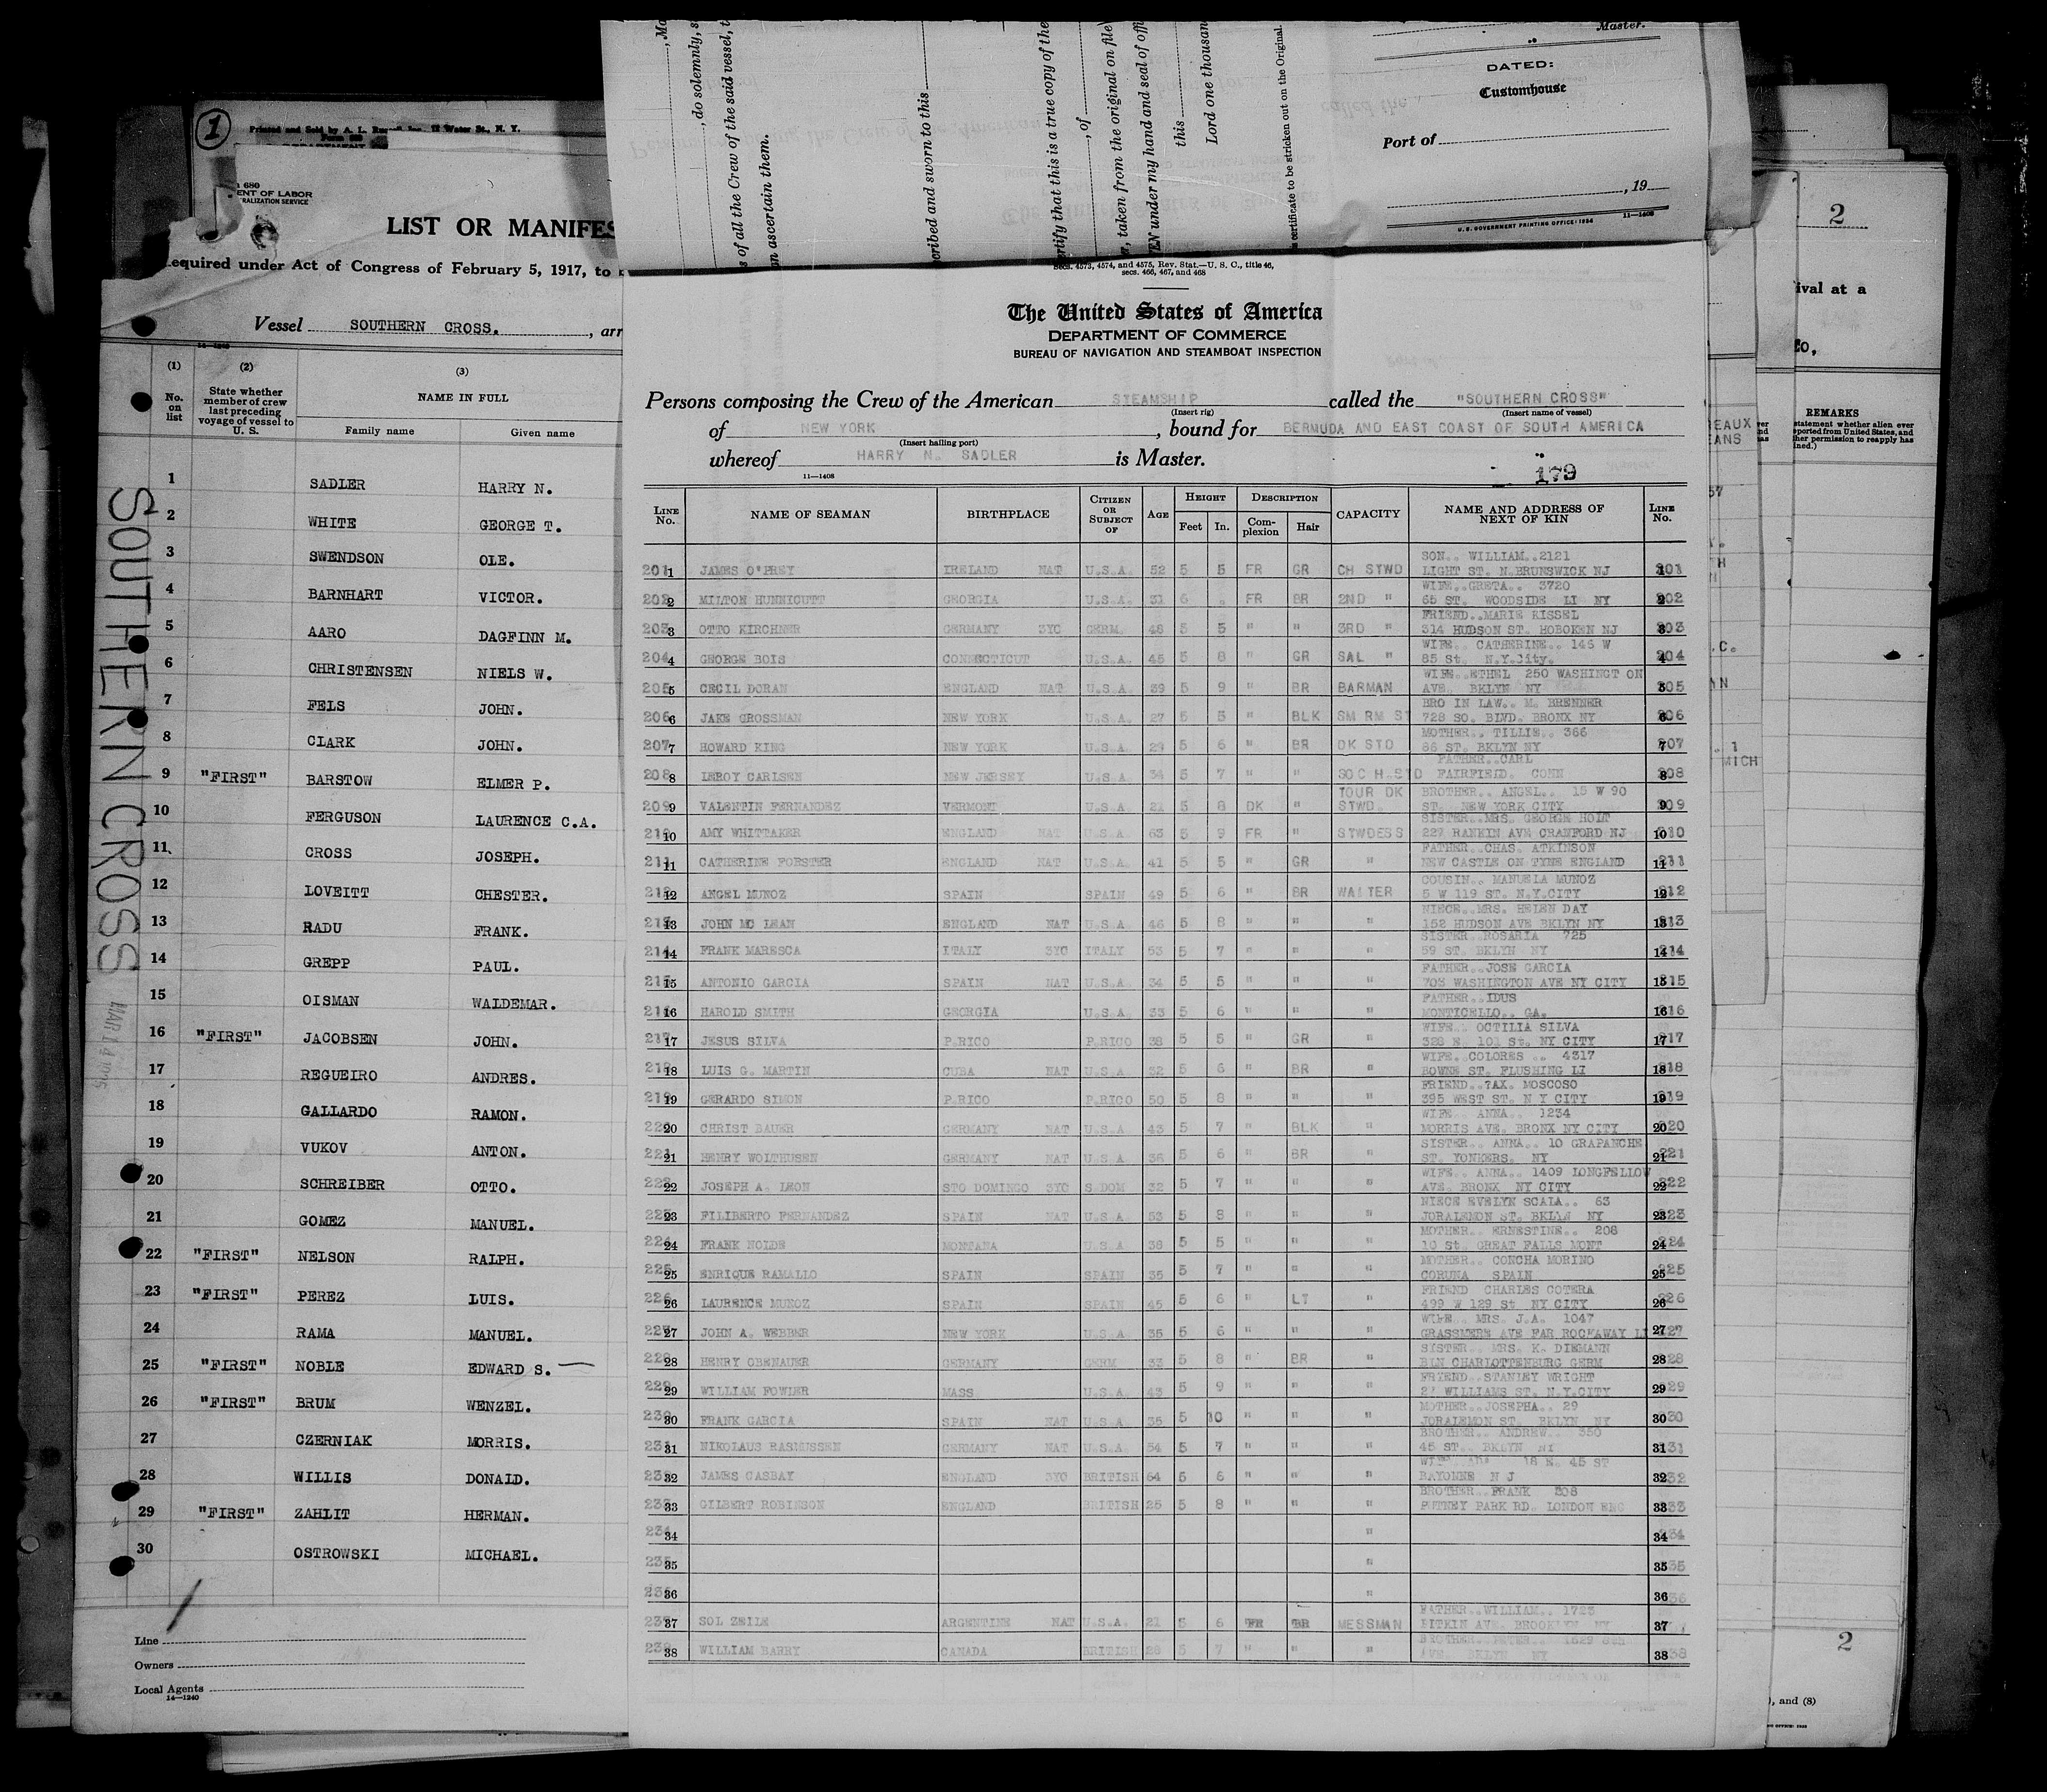 1
Printed and Sold by A. L.
Water St., N. Y.
680
ENT OF LABOR
RALIZATION SERVICE
LIST OR MANIFES
equired under Act of Congress of February 5, 1917, to
Vessel SOUTHERN CROSS. , arr
(1) (2) (3)
No. on list
State whether member of crew last preceding voyage of vessel to U. S.
NAME IN FULL
Family name Given name
1 SADLER HARRY N.
2 WHITE GEORGE T.
3 SWENDSON OLE.
4 BARNHART VICTOR.
5 AARO DAGFINN M.
6 CHRISTENSEN NIELS W.
7 FELS JOHN.
8 CLARK JOHN.
9 "FIRST" BARSTOW ELMER P.
10 FERGUSON LAURENCE C.A.
11 CROSS JOSEPH.
12 LOVEITT CHESTER.
13 RADU FRANK.
14 GREPP PAUL.
15 OISMAN WALDEMAR.
16 "FIRST" JACOBSEN JOHN.
17 REGUEIRO ANDRES.
18 GALLARDO RAMON.
19 VUKOV ANTON.
20 SCHREIBER OTTO.
21 GOMEZ MANUEL.
22 "FIRST" NELSON RALPH.
23 "FIRST" PEREZ LUIS.
24 RAMA MANUEL.
25 "FIRST" NOBLE EDWARD S.
26 "FIRST" BRUM WENZEL.
27 CZERNIAK MORRIS.
28 WILLIS DONALD.
29 "FIRST" ZAHLIT HERMAN.
30 OSTROWSKI MICHAEL.
Line
Owners
Local Agents
14—1240
SOUTHERN CROSS
MAR 14
, do solemnly, s
s of all the Crew of the said vessel, t
n ascertain them.
cribed and sworn to this
rtify that this is a true copy of the
, of
, taken from the original on file
EN under my hand and seal of offi
this
Lord one thousan
s certificate to be stricken out on the Original.
Master.
DATED:
Customhouse
Port of
, 19
U. S. GOVERNMENT PRINTING OFFICE: 1934 11—1408
Secs. 4573, 4574, and 4575, Rev. Stat.—U. S. C., title 46,
secs. 466, 467, and 468
The United States of America
DEPARTMENT OF COMMERCE
BUREAU OF NAVIGATION AND STEAMBOAT INSPECTION
Persons composing the Crew of the American STEAMSHIP called the "SOUTHERN CROSS"
(Insert rig) (Insert name of vessel)
of NEW YORK , bound for BERMUDA AND EAST COAST OF SOUTH AMERICA
(Insert hailing port)
whereof HARRY N. SADLER is Master.
11—1408
179
LINE No. NAME OF SEAMAN BIRTHPLACE CITIZEN OR SUBJECT OF AGE HEIGHT Feet In. DESCRIPTION Complexion Hair CAPACITY NAME AND ADDRESS OF NEXT OF KIN LINE No.
SON.. WILLIAM..2121
201 1 JAMES O'PREY IRELAND NAT U.S.A. 52 5 5 FR GR CH STWD LIGHT ST. N.BRUNSWICK NJ 1 201
WIFE..GRETA.. 3720
202 2 MILTON HUNNICUTT GEORGIA U.S.A. 31 6 . FR BR 2ND " 65 ST. WOODSIDE LI NY 2 202
FRIEND..MARIE RISSEL
203 3 OTTO KIRCHNER GERMANY 3YC GERM. 48 5 5 " " 3RD " 314 HUDSON ST. HOBOKEN NJ 3 203
WIFE.. CATHERINE.. 145 W
204 4 GEORGE BOIS CONNECTICUT U.S.A. 45 5 8 " GR SAL " 85 St. N.Y.City. 4 204
WIFE..ETHEL 250 WASHINGT ON
205 5 CECIL DORAN ENGLAND NAT U.S.A. 39 5 9 " BR BARMAN AVE. BKLYN NY 5 205
BRO IN LAW.. M. BRENNER
206 6 JAKE GROSSMAN NEW YORK U.S.A. 27 5 3 " BLK SM RM ST 728 SO. BLVD. BRONX NY 6 206
MOTHER.. TILLIE.. 366
207 7 HOWARD KING NEW YORK U.S.A. 23 5 6 " BR DK STD 86 ST. BKLYN NY 7 207
FATHER..CARL
208 8 LEROY CARLSEN NEW JERSEY U.S.A. 34 5 7 " " SOC H.STD FAIRFIELD. CONN 8 208
TOUR DK BROTHER.. ANGEL.. 15 W 90
209 9 VALENTIN FERNANDEZ VERMONT U.S.A. 21 5 8 DK " STWD. ST. NEW YORK CITY 9 209
SISTER..MRS. GEORGE HOLT
210 10 AMY WHITTAKER ENGLAND NAT U.S.A. 63 5 9 FR " STWDESS 227 RANKIN AVE CRANFORD NJ 10 210
FATHER..CHAS. ATKINSON
211 11 CATHERINE FORSTER ENGLAND NAT U.S.A. 41 5 5 " GR " NEW CASTLE ON TYNE ENGLAND 11 211
COUSIN.. MANUELA MUNOZ
212 12 ANGEL MUNOZ SPAIN SPAIN 49 5 6 " BR WAITER 5 W 119 ST. N.Y.CITY 12 212
NIECE..MRS. HELEN DAY
213 13 JOHN MC LEAN ENGLAND NAT U.S.A. 46 5 8 " " " 152 HUDSON AVE BKLYN NY 13 213
SISTER..ROSARIA 725
214 14 FRANK MARESCA ITALY 3YC ITALY 53 5 7 " " " 59 ST. BKLYN NY 14 214
FATHER..JOSE GARCIA
215 15 ANTONIO GARCIA SPAIN NAT U.S.A. 34 5 5 " " " 708 WASHINGTON AVE NY CITY 15 215
FATHER..IDUS
216 16 HAROLD SMITH GEORGIA U.S.A. 33 5 6 " " " MONTICELLO.. GA. 16 216
WIFE.. OCTILIA SILVA
217 17 JESUS SILVA P.RICO P.RICO 38 5 5 " GR " 328 E. 101 St. NY CITY 17 217
WIFE..COLORES .. 4317
218 18 LUIS G. MARTIN CUBA NAT U.S.A. 32 5 6 " BR " BOWNE ST. FLUSHING LI 18 218
FRIEND.. MOSCOSO
219 19 GERARDO SIMON P.RICO P.RICO 50 5 8 " " " 395 WEST ST. N Y CITY 19 219
WIFE.. ANNA.. 1234
220 20 CHRIST BAUER GERMANY NAT U.S.A. 43 5 7 " BLK " MORRIS AVE. BRONX NY CITY 20 220
SISTER.. ANNA.. 10 GRAPANCHE
221 21 HENRY WOLTHUSEN GERMANY NAT U.S.A 36 5 6 " BR " ST. YONKERS. NY 21 221
WIFE.. ANNA.. 1409 LONGFELLOW
222 22 JOSEPH A. LEON STO DOMINGO 3YC S.DOM 32 5 7 " " " AVE. BRONX NY CITY 22 222
NIECE EVELYN SCALA.. 63
223 23 FILIBERTO FERNANDEZ SPAIN NAT U.S.A. 53 5 8 " " " JORALEMON ST. BKLYN NY 23 223
MOTHER.. ERNESTINE.. 208
224 24 FRANK NOLDE MONTANA U.S.A 36 5 5 " " " 10 St. GREAT FALLS MONT 24 224
MOTHER.. CONCHA MORINO
225 25 ENRIQUE RAMALLO SPAIN SPAIN 35 5 7 " " " CORUNA SPAIN 25 225
FRIEND CHARLES COTERA
226 26 LAURENCE MUNOZ SPAIN SPAIN 45 5 6 " LT " 499 W 129 St NY CITY 26 226
WIFE.. MRS. J.A. 1047
227 27 JOHN A. WEBBER NEW YORK U.S.A. 35 5 6 " " " GRASSMERE AVE FAR ROCKAWAY LI 27 227
SISTER.. MRS. K. DIEMANN
228 28 HENRY OBENAUER GERMANY GERM 33 5 8 " BR " BLN CHARLOTTENBURG GERM 28 228
FRIEND..STANLEY WRIGHT
229 29 WILLIAM FOWLER MASS U.S.A. 43 5 9 " " " WILLIAMS ST. N.Y.CITY 29 229
MOTHER..JOSEPHA.. 29
230 30 FRANK GARCIA SPAIN NAT U.S.A. 35 5 10 " " " JORALEMON ST. BKLYN NY 30 230
BROTHER.. ANDREW.. 350
231 31 NIKOLAUS RASMUSSEN GERMANY NAT U.S.A. 54 5 7 " " " 45 ST.. BKLYN NY 31 231
18 E. 45 ST
232 32 JAMES CASBAY ENGLAND 3YC BRITISH 64 5 6 " " " BAYONNE N J 32 232
BROTHER..FRANK 308
233 33 GILBERT ROBINSON ENGLAND BRITISH 25 5 8 " " " PUTNEY PARK RD. LONDON ENG 33 233
234 34 " 34 234
235 35 " 35 235
236 36 " 36 236
FATHER..WILLIAM.. 1725
237 37 SOL ZEILE ARGENTINE NAT U.S.A. 21 5 6 FR BR MESSMAN PITKIN AVE. BROOKLYN NY 37
BROTHER..PETER.. 1629 8th
238 38 WILLIAM BARRY CANADA BRITISH 28 5 7 " " " AVE. BKLYN NY 38 238
2
ival at a
REMARKS
statement whether alien ever
ported from United States, and
her permission to reapply has
ned.)
EAUX
EANS
57
.C.
MICH
2
), and (8)